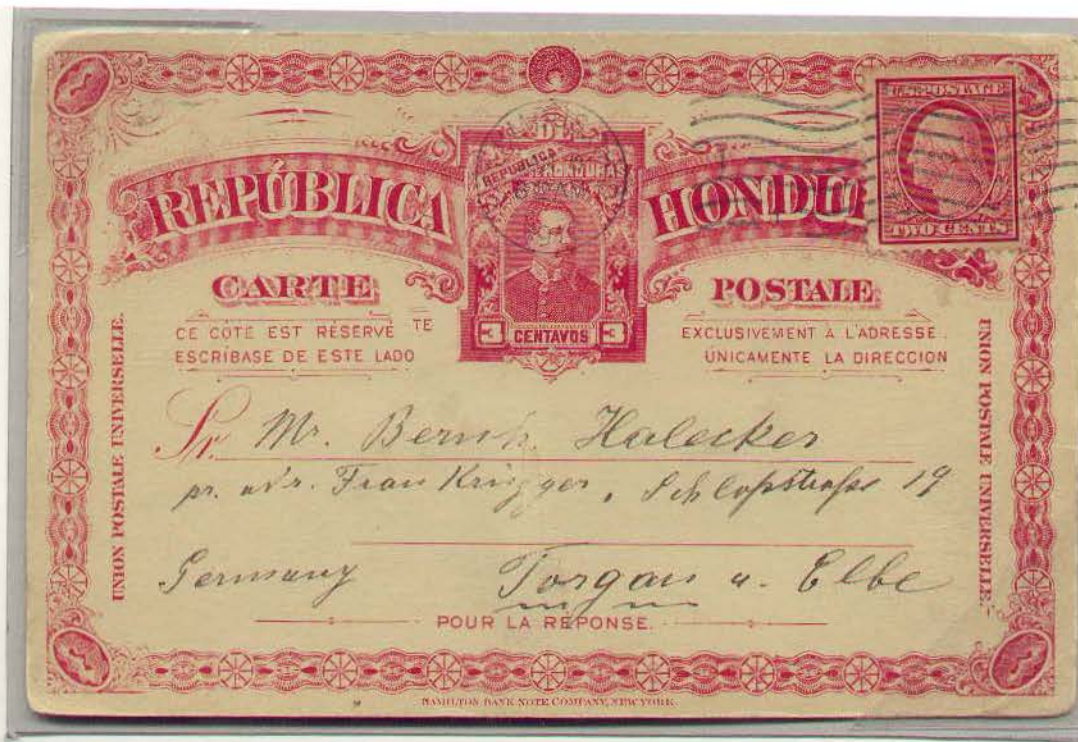 U.S. POSTAGE
TWO CENTS
REPUBLICA
DE HONDURAS
REPÚBLICA HONDU
CARTE POSTALE
CE COTE EST RÉSERVÉ TE
ESCRÍBASE DE ESTE LADO
3 CENTAVOS 3
EXCLUSIVEMENT À L'ADRESSE.
ÚNICAMENTE LA DIRECCION
UNION POSTALE UNIVERSELLE.
UNION POSTALE UNIVERSELLE.
Sr. Mr. Bernh. Halecker
pr. adr. Frau Krügger, Schloßstraße 19
Germany Torgau a. Elbe
POUR LA RÉPONSE.
HAMILTON BANK NOTE COMPANY, NEW YORK.